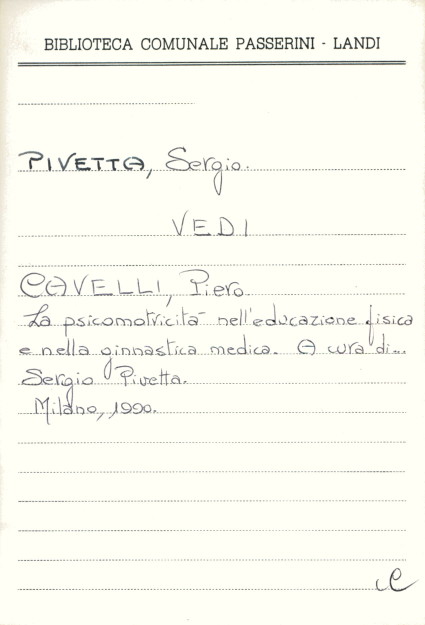 BIBLIOTECA COMUNALE PASSERINI - LANDI
PIVETTA, Sergio.
VEDI
CAVELLI, Piero.
La psicomotricità nell'educazione fisica
e nella ginnastica medica. A cura di...
Sergio Pivetta.
Milano, 1990.